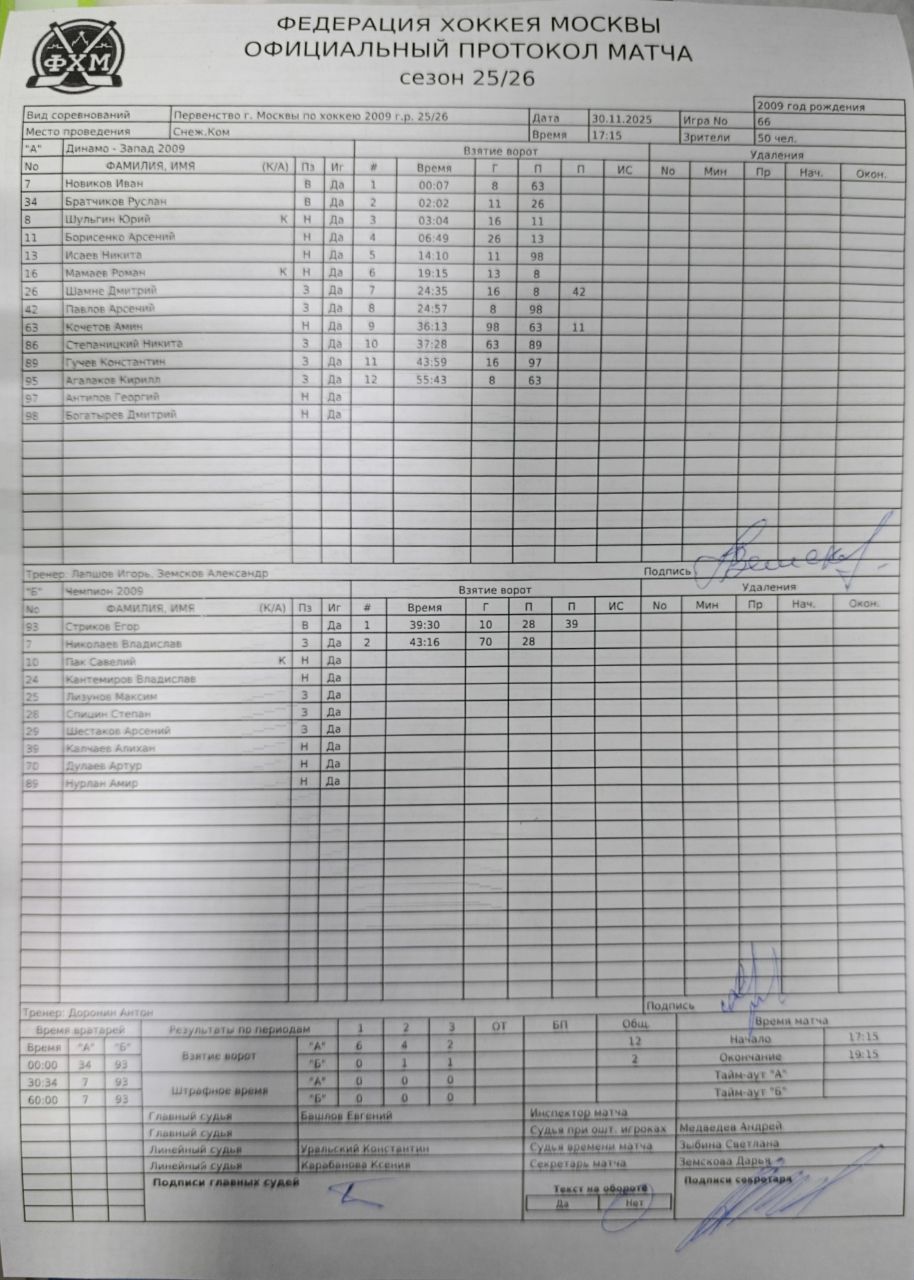 ФХМ
ФЕДЕРАЦИЯ ХОККЕЯ МОСКВЫ
ОФИЦИАЛЬНЫЙ ПРОТОКОЛ МАТЧА
сезон 25/26
2009 год рождения
Вид соревнований Первенство г. Москвы по хоккею 2009 г.р. 25/26 Дата 30.11.2025 Игра No 66
Место проведения Снеж.Ком Время 17:15 Зрители 50 чел.
"А" Динамо - Запад 2009 Взятие ворот Удаления
No ФАМИЛИЯ, ИМЯ (К/А) Пз Иг # Время Г П П ИС No Мин Пр Нач. Окон.
7 Новиков Иван В Да 1 00:07 8 63
34 Братчиков Руслан В Да 2 02:02 11 26
8 Шульгин Юрий К Н Да 3 03:04 16 11
11 Борисенко Арсений Н Да 4 06:49 26 13
13 Исаев Никита Н Да 5 14:10 11 98
16 Мамаев Роман К Н Да 6 19:15 13 8
26 Шамне Дмитрий З Да 7 24:35 16 8 42
42 Павлов Арсений З Да 8 24:57 8 98
63 Кочетов Амин Н Да 9 36:13 98 63 11
86 Степаницкий Никита З Да 10 37:28 63 89
89 Гучев Константин З Да 11 43:59 16 97
95 Агалаков Кирилл З Да 12 55:43 8 63
97 Антипов Георгий Н Да
98 Богатырев Дмитрий Н Да
Тренер: Лапшов Игорь, Земсков Александр Подпись
"Б" Чемпион 2009 Взятие ворот Удаления
No ФАМИЛИЯ, ИМЯ (К/А) Пз Иг # Время Г П П ИС No Мин Пр Нач. Окон.
93 Стриков Егор В Да 1 39:30 10 28 39
7 Николаев Владислав З Да 2 43:16 70 28
10 Пак Савелий К Н Да
24 Кантемиров Владислав Н Да
25 Лизунов Максим З Да
28 Спицин Степан З Да
29 Шестаков Арсений З Да
39 Калчаев Алихан Н Да
70 Дулаев Артур Н Да
89 Нурлан Амир Н Да
Тренер: Доронин Антон Подпись
Время вратарей Результаты по периодам 1 2 3 ОТ БП Общ. Время матча
Время "А" "Б" Взятие ворот "А" 6 4 2 12 Начало 17:15
00:00 34 93 "Б" 0 1 1 2 Окончание 19:15
30:34 7 93 Штрафное время "А" 0 0 0 Тайм-аут "А"
60:00 7 93 "Б" 0 0 0 Тайм-аут "Б"
Главный судья Башлов Евгений Инспектор матча
Главный судья Судья при ошт. игроках Медведев Андрей
Линейный судья Уральский Константин Судья времени матча Зыбина Светлана
Линейный судья Карабанова Ксения Секретарь матча Земскова Дарья
Подписи главных судей Текст на обороте Подписи секретаря
Да Нет